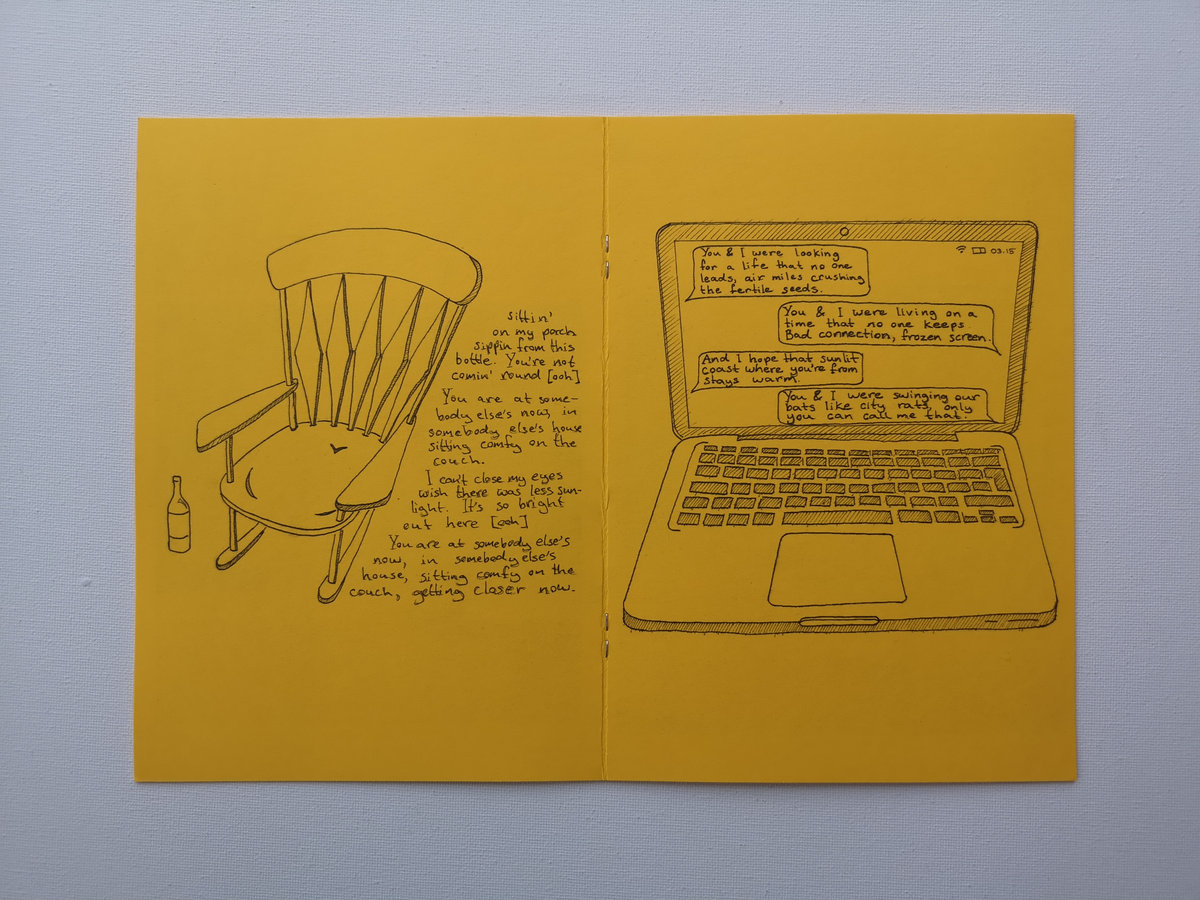 sittin'
on my porch
sippin from this
bottle. You're not
comin' round [ooh]
You are at some-
body else's now, in
somebody else's house
sitting comfy on the
couch.
I can't close my eyes
wish there was less sun-
light. It's so bright
out here [ooh]
You are at somebody else's
now, in somebody else's
house, sitting comfy on the
couch, getting closer now.
03.15
You & I were looking
for a life that no one
leads, air miles crushing
the fertile seeds.
You & I were living on a
time that no one keeps.
Bad connection, frozen screen.
And I hope that sunlit
coast where you're from
stays warm.
You & I were swinging our
bats like city rats, only
you can call me that.